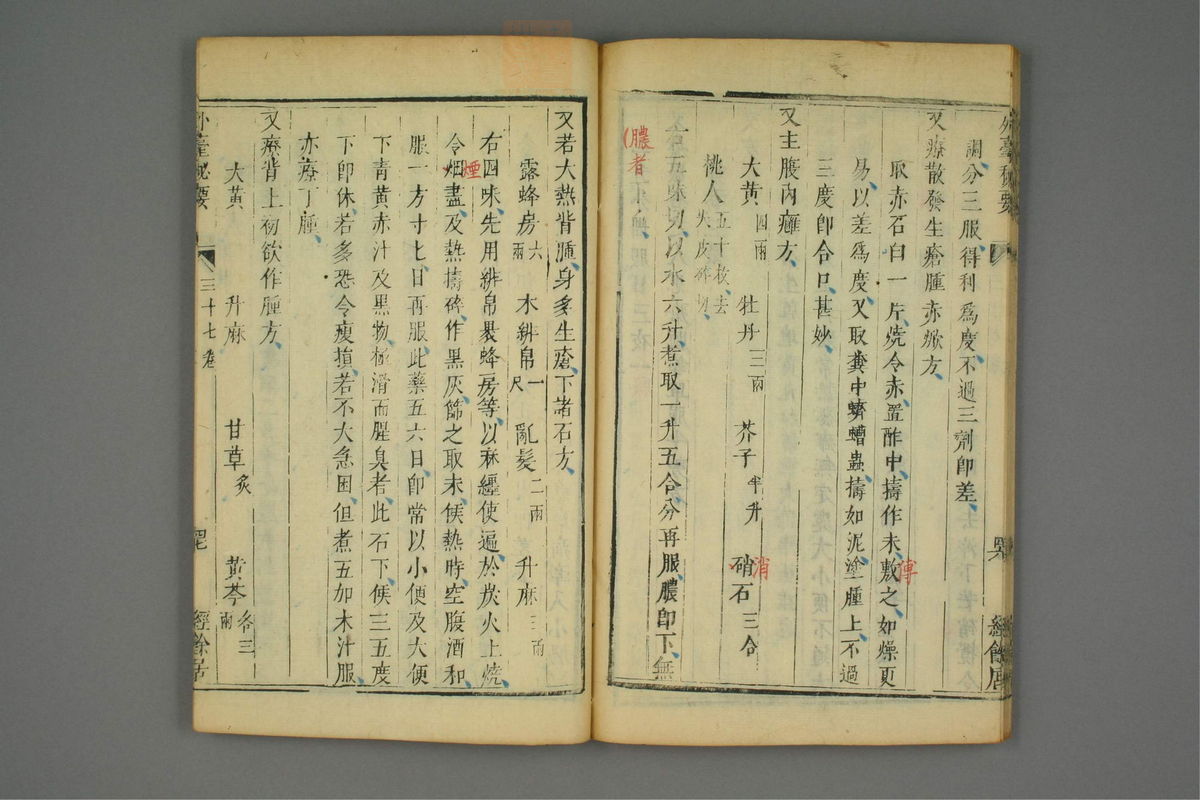 外臺秘要
經餘居
調分三服得利為度不過三劑即差
又療散發生瘡腫赤焮方
取赤石白一片燒令赤置酢中擣作末敷之如燥更
傅
易以差為度又取糞中蠐螬蟲擣如泥塗腫上不過
三度即合口甚妙
又主腹內癰方
大黃四兩 牡丹三兩 芥子半升 硝石三合
消
桃人五十枚去尖皮碎切
右五味切以水六升煮取一升五合分再服膿即下無
膿者
又若大熱背腫身多生瘡下諸石方
露蜂房六兩 木緋帛一尺 亂髮二兩 升麻三兩
右四味先用緋帛裹蜂房等以麻纏使遍於炭火上燒
煙
令烟盡及熱擣碎作黑灰篩之取末候熱時空腹酒和
服一方寸七日再服此藥五六日即常以小便及大便
下青黃赤汁及黑物極滑而腥臭者此石下候三五度
下即休若多恐令瘦損若不大急困但煮五加木汁服
亦療丁腫
又療背上初欲作腫方
大黃 升麻 甘草炙 黃芩各三兩
外臺秘要 三十七卷 經餘居